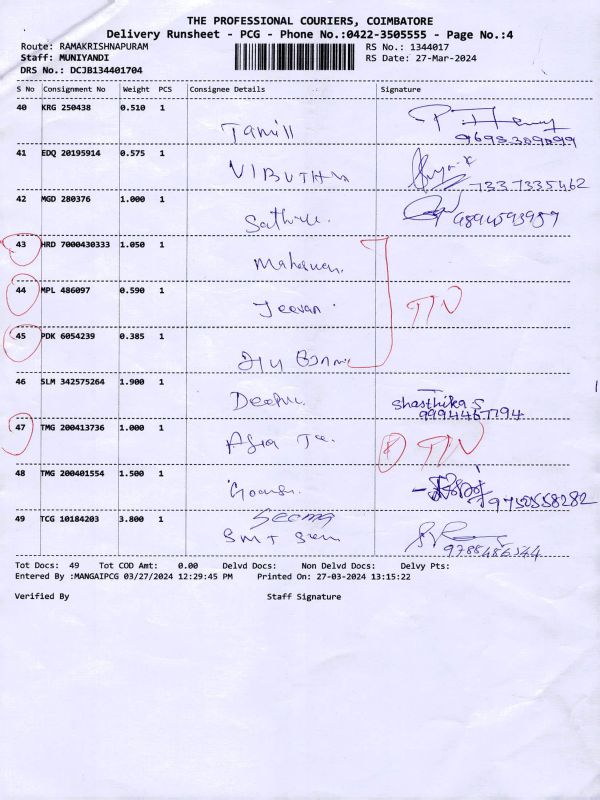 THE PROFESSIONAL COURIERS, COIMBATORE
Delivery Runsheet - PCG - Phone No.:0422-3505555 - Page No.:4
Route: RAMAKRISHNAPURAM RS No.: 1344017
Staff: MUNIYANDI RS Date: 27-Mar-2024
DRS No.: DCJB134401704
S No Consignment No Weight PCS Consignee Details Signature
40 KRG 250438 0.510 1
Tamill
9695309099
41 EDQ 20195914 0.575 1
VIBUTHI
7337335462
42 MGD 280376 1.000 1
9894593959
43 HRD 7000430333 1.050 1
44 MPL 486097 0.590 1
Jeevan TTN
45 PDK 6054239 0.385 1
46 SLM 342575264 1.900 1
Shasthika S
9994467194
47 TMG 200413736 1.000 1
Asia TTN
48 TMG 200401554 1.500 1
9750558282
49 TCG 10184203 3.800 1
Seema
SMT
9788486544
Tot Docs: 49 Tot COD Amt: 0.00 Delvd Docs: Non Delvd Docs: Delvy Pts:
Entered By :MANGAIPCG 03/27/2024 12:29:45 PM Printed On: 27-03-2024 13:15:22
Verified By Staff Signature